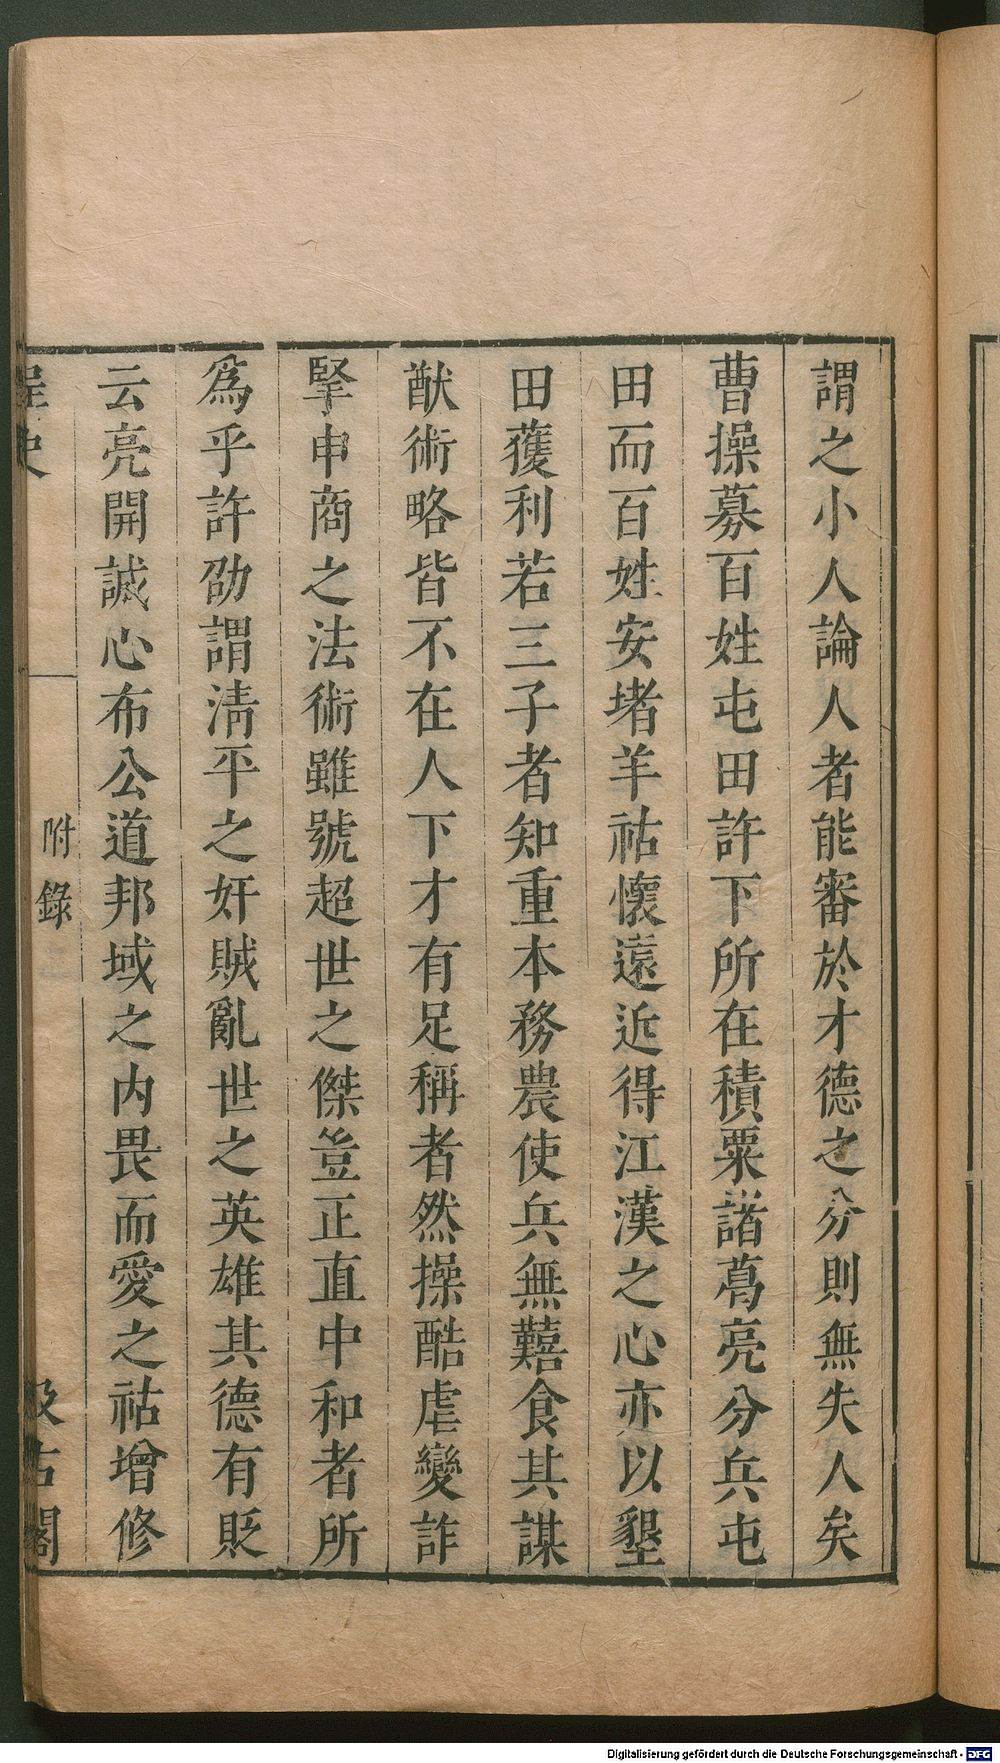 謂之小人論人者能審於才德之分則無失人矣
曹操募百姓屯田許下所在積粟諸葛亮分兵屯
田而百姓安堵羊祜懷遠近得江漢之心亦以墾
田獲利若三子者知重本務農使兵無囏食其謀
猷術略皆不在人下才有足稱者然操酷虐變詐
掔申商之法術雖號超世之傑豈正直中和者所
為乎許劭謂淸平之奸賊亂世之英雄其德有貶
云亮開誠心布公道邦域之内畏而愛之祜增修
桯史
附錄
汲古閣
Digitalisierung gefördert durch die Deutsche Forschungsgemeinschaft - DFG